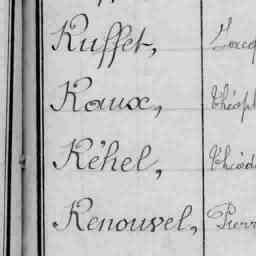 Ruffet, Jacq
Raux, Théoph
Réhel, Théod
Renouvel, Pierr